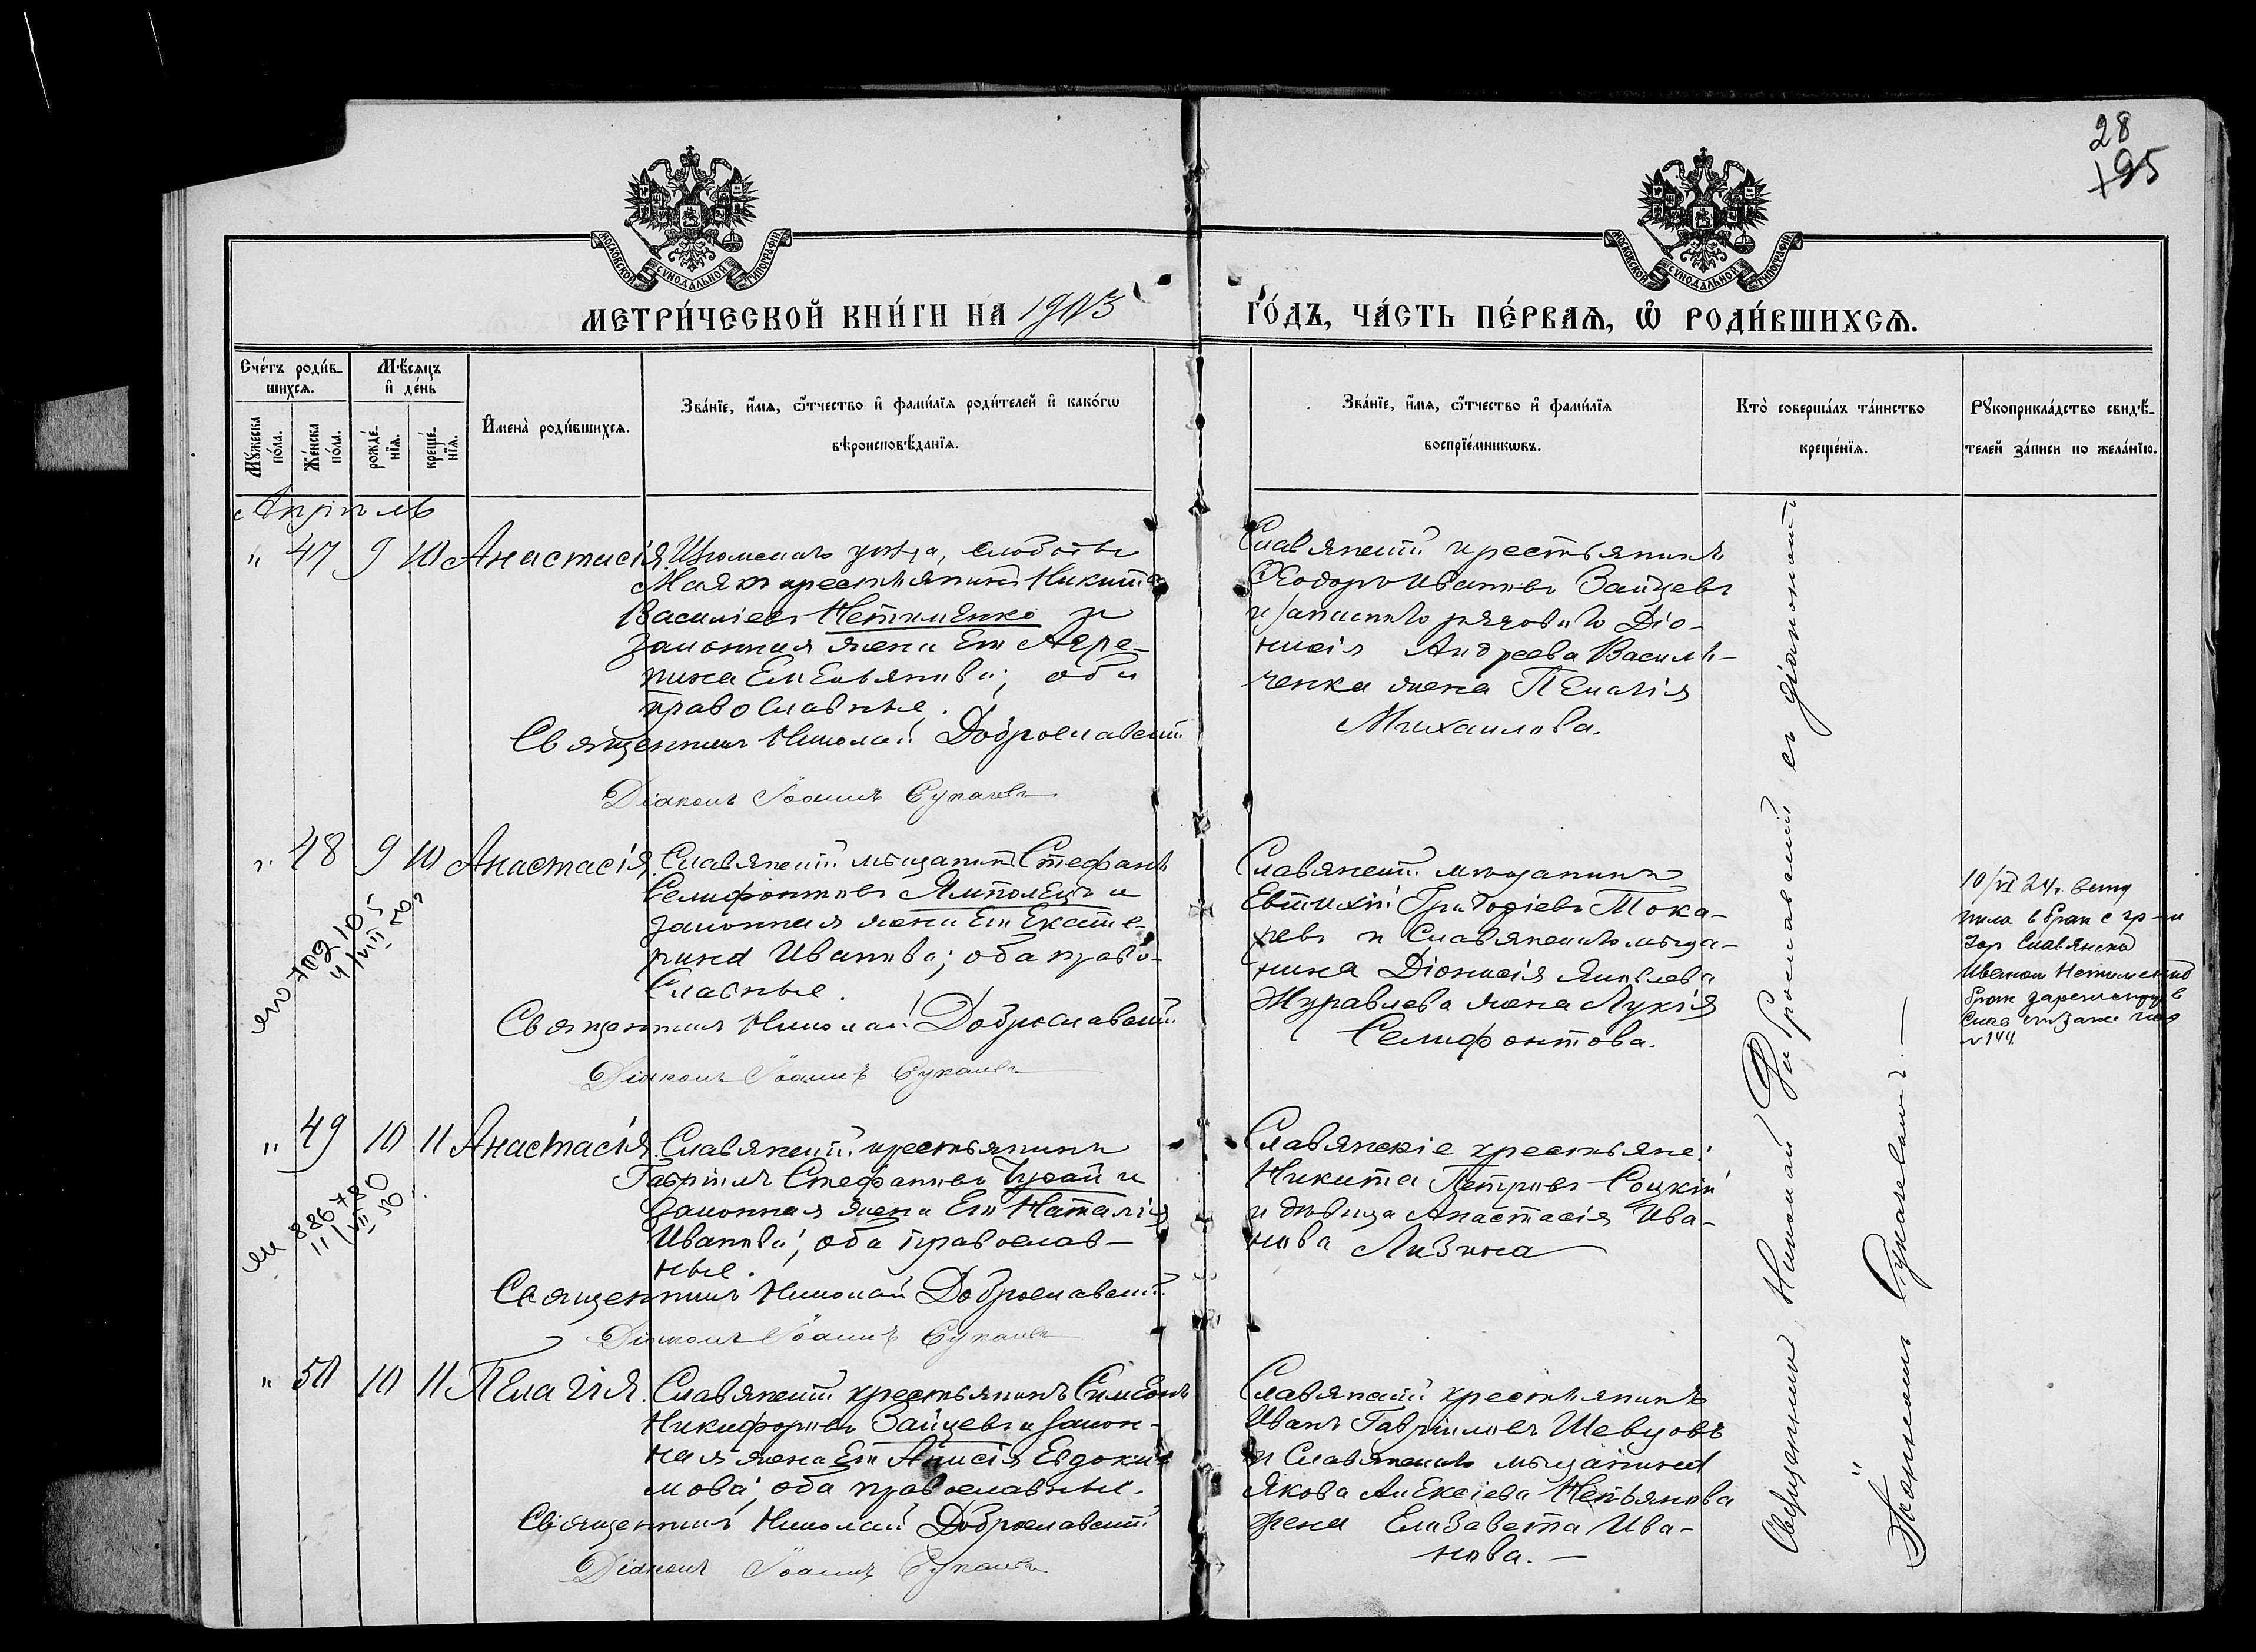 28
195
МОСКОВСКОЙ СѴНОДАЛЬНОЙ ТИПОГРАФІИ
МОСКОВСКОЙ СѴНОДАЛЬНОЙ ТИПОГРАФІИ
МЕТРИ́ЧЕСКОЙ КНИ́ГИ НА 1903
ГО́ДЪ, ЧА́СТЬ ПЕ́РВАѦ, Ѽ РОДИ́ВШИХСѦ.
Сче́тъ роди́в-
шихсѧ.
Мѣ́сѧцъ
и҆ де́нь
Мꙋ́жеска
по́ла.
Же́нска
по́ла.
рожде́-
нїѧ.
креще́-
нїѧ.
И҆мена̀ роди́вшихсѧ.
Зва́нїе, и҆́мѧ, ѻ҆́тчество и҆ фами́лїѧ роди́телей и҆ како́гѡ
вѣроисповѣ́данїѧ.
Зва́нїе, и҆́мѧ, ѻ҆́тчество и҆ фами́лїѧ
воспрїе́мникѡвъ.
Кто̀ соверша́лъ та́инство
креще́нїѧ.
Рꙋкоприкла́дство свидѣ́-
телей за́писи по жела́нїю.
Апрѣль
" 47 9 10 Анастасія. Изюмскаго уѣзда, слободы
Маякъ крестьянинъ Никита
Василіевъ Нетименко и
законная жена его Агре-
пина Емельянова; оба
православные.
Священникъ Николай Доброславскій
Діаконъ Іоаннъ Сукачевъ
Славянскій крестьянинъ
Ѳеодоръ Ивановъ Зайцевъ
и запаснаго рядоваго Діо-
нисія Андреева Василь-
ченка жена Пелагія
Михаилова.
" 48 9 10 Анастасія. Славянскій мѣщанинъ Стефанъ
Селифонтовъ Ямполецъ и
законная жена его Екате-
рина Иванова; оба право-
славные.
Священникъ Николай Доброславскій
Діаконъ Іоаннъ Сукачевъ
Славянскій мѣщанинъ
Евтихій Григоріевъ Тока-
ревъ и Славянскаго мѣща-
нина Діонисія Яковлева
Журавлева жена Лукія
Селифонтова.
10/VI 24 г. всту
пила в брак с гр-м
гор Славянска
Иваном Нетименко
брак
№ 144
" 49 10 11 Анастасія. Славянскій крестьянинъ
Гавріилъ Стефановъ Чухай и
законная жена его Наталія
Иванова; оба православ-
ные.
Священникъ Николай Доброславскій
Діаконъ Іоаннъ Сукачевъ
Славянскіе крестьяне:
Никита Петровъ Соцкій
и дѣвица Анастасія Ива-
нова Лизина
" 50 10 11 Пелагія. Славянскій крестьянинъ Симеонъ
Никифоровъ Зайцевъ и закон-
ная жена его Анисія Евдоки-
мова; оба православные.
Священникъ Николай Доброславскій
Діаконъ Іоаннъ Сукачевъ
Славянскій крестьянинъ
Иванъ Гавріиловъ Шевцовъ
и Славянскаго мѣщанина
Якова Алексіева
жена Елизавета Ива-
нова.
Священникъ Николай Доброславскій съ діакономъ
Іоанномъ Сукачевымъ.